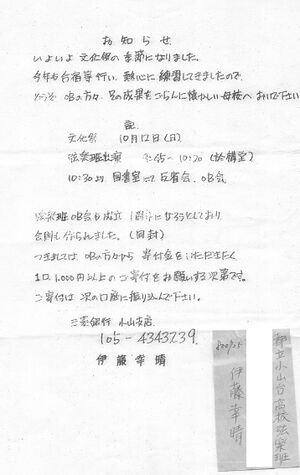 お知らせ
いよいよ文化祭の季節になりました。
今年も合宿等行い、熱心に練習してきましたので、
どうぞOBの方々、その成果をごらんに懐かしい母校へおいで下さい
記
文化祭 10月12日(日)
弦楽班出演 9:45〜10:20(於講堂)
10:30より図書室にて反省会、OB会
弦楽班OB会も成立 になろうとしており
会則も作られました。(同封)
つきましては OBの方から寄付金をいただきたく
1口1,000円以上のご寄付をお願いする次第です。
ご寄付は次の口座に振り込んで下さい。
三菱銀行 小山支店
105-4343239
伊藤幸晴
都立小山台高校弦楽班
伊藤幸晴